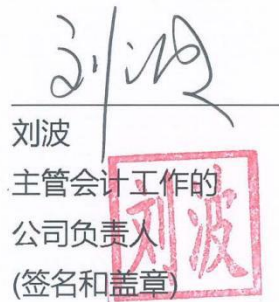 刘波
刘波
主管会计工作的
公司负责人
(签名和盖章)
刘波